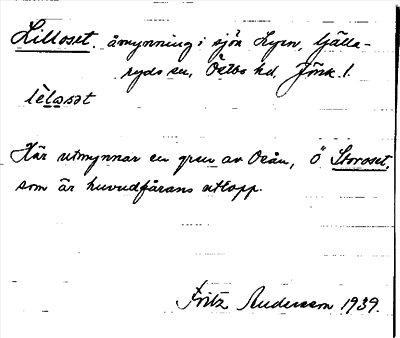 Lilloset, åmynning i sjön Lyen, Gjälla-
ryds sn, Östbo hd, Jönk. l.
lèlasət
Här utmynnar en gren av Osån, Ö Storoset,
som är huvudfårans utlopp.
Fritz Andersson 1939.